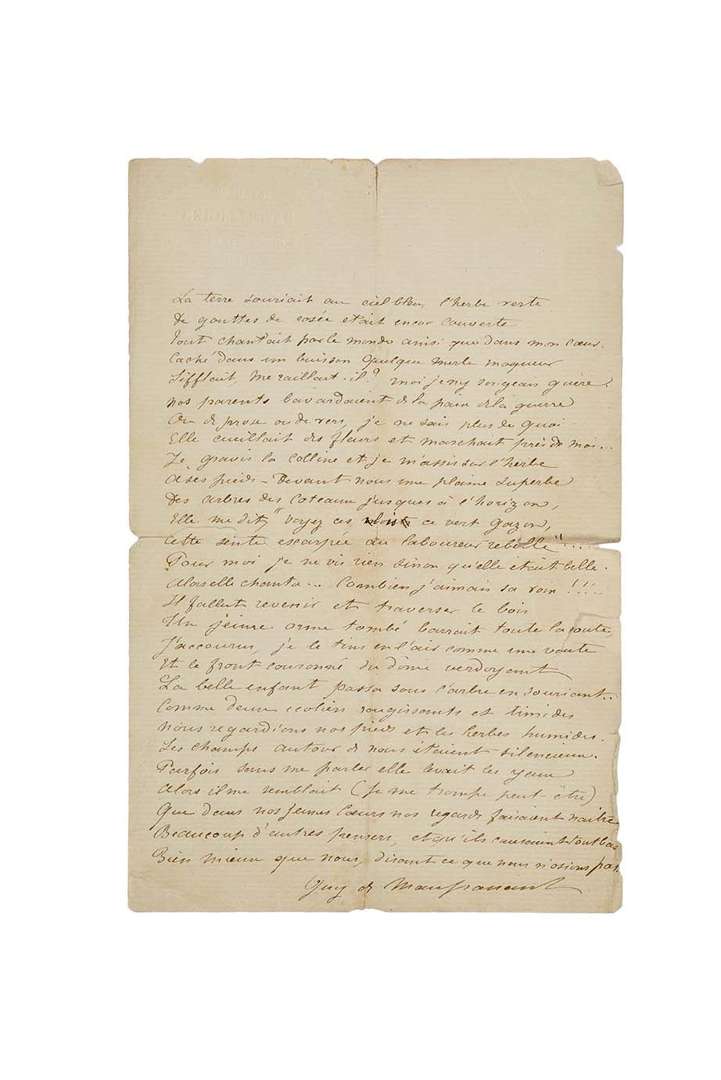 La terre souriait au ciel bleu, l'herbe verte
De gouttes de rosée était encor couverte
Tout chantait par le monde ainsi que dans mon cœur.
Caché dans un buisson quelque merle moqueur
Sifflait, me raillait-il? moi je n'y songeais guère
nos parents bavardaient de la paix de la guerre
Ou de prose ou de vers, je ne sais plus de quoi
Elle cueillait des fleurs et marchait près de moi...
Je gravis la colline et je m'assis sur l'herbe
A ses pieds - Devant nous une plaine superbe
Des arbres des coteaux jusques à l'horizon,
Elle me dit, "voyez ces ce vert gazon,
Cette sente escarpée au laboureur rebelle"....
Pour moi je ne vis rien sinon qu'elle était belle.
Alors elle chanta... Combien j'aimais sa voix !!!!
Il fallut revenir et traverser le bois
Un jeune orme tombé barrait toute la route
J'accourus, je le tins en l'air comme une voute
Et le front couronné du dôme verdoyant
La belle enfant passa sous l'arbre en souriant..
Comme deux écoliers rougissants et timides
nous regardions nos pieds et les herbes humides.
Les champs autour de nous étaient silencieux.
Parfois sans me parler elle levait les yeux
Alors il me semblait (je me trompe peut être)
Que dans nos jeunes cœurs nos regards faisaient naître
Beaucoup d'autres pensers, et qu'ils causaient tout bas
Bien mieux que nous, disant ce que nous n'osions pas
Guy de Maupassant